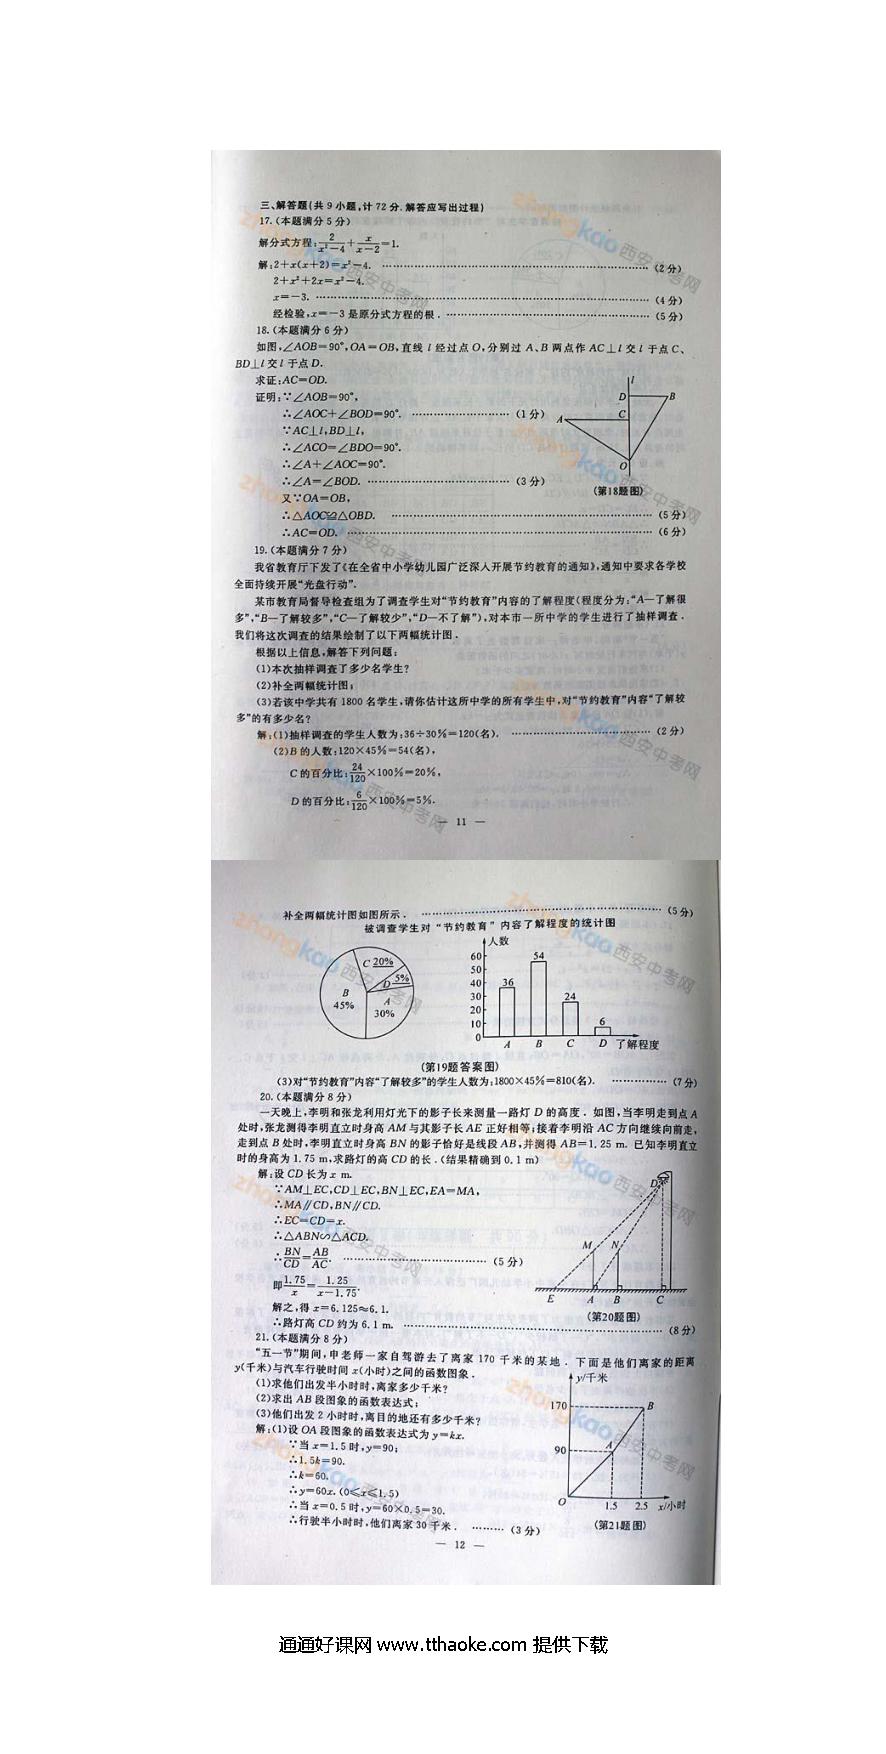 三、解答题(共9小题,计72分.解答应写出过程)
17.(本题满分5分)
解分式方程:2/(x²-4)+x/(x-2)=1.
解:2+x(x+2)=x²-4. ……(2分)
2+x²+2x=x²-4.
x=-3. ……(4分)
经检验,x=-3是原分式方程的根. ……(5分)
18.(本题满分6分)
如图,∠AOB=90°,OA=OB,直线l经过点O,分别过A、B两点作AC⊥l交l于点C、
BD⊥l交l于点D.
求证:AC=OD.
证明:∵∠AOB=90°,
∴∠AOC+∠BOD=90°. ……(1分)
∵AC⊥l,BD⊥l,
∴∠ACO=∠BDO=90°.
∴∠A+∠AOC=90°.
∴∠A=∠BOD. ……(3分)
又∵OA=OB,
∴△AOC≌△OBD. ……(5分)
∴AC=OD. ……(6分)
l
D
B
A
C
O
(第18题图)
19.(本题满分7分)
我省教育厅下发了《在全省中小学幼儿园广泛深入开展节约教育的通知》,通知中要求各学校
全面持续开展“光盘行动”.
某市教育局督导检查组为了调查学生对“节约教育”内容的了解程度(程度分为:“A—了解很
多”,“B—了解较多”,“C—了解较少”,“D—不了解”),对本市一所中学的学生进行了抽样调查.
我们将这次调查的结果绘制了以下两幅统计图.
根据以上信息,解答下列问题:
(1)本次抽样调查了多少名学生?
(2)补全两幅统计图;
(3)若该中学共有1800名学生,请你估计这所中学的所有学生中,对“节约教育”内容“了解较
多”的有多少名?
解:(1)抽样调查的学生人数为:36÷30%=120(名). ……(2分)
(2)B的人数:120×45%=54(名),
C的百分比:24/120×100%=20%,
D的百分比:6/120×100%=5%.
— 11 —
补全两幅统计图如图所示. ……(5分)
被调查学生对“节约教育”内容了解程度的统计图
C 20%
D 5%
B
45%
A
30%
人数
60
50
40
30
20
10
0
36
54
24
6
A B C D 了解程度
(第19题答案图)
(3)对“节约教育”内容“了解较多”的学生人数为:1800×45%=810(名). ……(7分)
20.(本题满分8分)
一天晚上,李明和张龙利用灯光下的影子长来测量一路灯D的高度.如图,当李明走到点A
处时,张龙测得李明直立时身高AM与其影子长AE正好相等;接着李明沿AC方向继续向前走,
走到点B处时,李明直立时身高BN的影子恰好是线段AB,并测得AB=1.25 m.已知李明直立
时的身高为1.75 m,求路灯的高CD的长.(结果精确到0.1 m)
解:设CD长为x m.
∵AM⊥EC,CD⊥EC,BN⊥EC,EA=MA,
∴MA∥CD,BN∥CD.
∴EC=CD=x.
∴△ABN∽△ACD.
∴BN/CD=AB/AC. ……(5分)
即1.75/x=1.25/(x-1.75).
解之,得x=6.125≈6.1.
∴路灯高CD约为6.1 m. ……(8分)
D
M
N
E
A
B
C
(第20题图)
21.(本题满分8分)
“五一节”期间,申老师一家自驾游去了离家170千米的某地.下面是他们离家的距离
y(千米)与汽车行驶时间x(小时)之间的函数图象.
(1)求他们出发半小时时,离家多少千米?
(2)求出AB段图象的函数表达式;
(3)他们出发2小时时,离目的地还有多少千米?
解:(1)设OA段图象的函数表达式为y=kx.
∵当x=1.5时,y=90;
∴1.5k=90.
∴k=60.
∴y=60x.(0≤x≤1.5)
∴当x=0.5时,y=60×0.5=30.
∴行驶半小时时,他们离家30千米. ……(3分)
y/千米
170
B
90
A
O
1.5
2.5
x/小时
(第21题图)
— 12 —
zhongkao西安中考网
通通好课网 www.tthaoke.com 提供下载